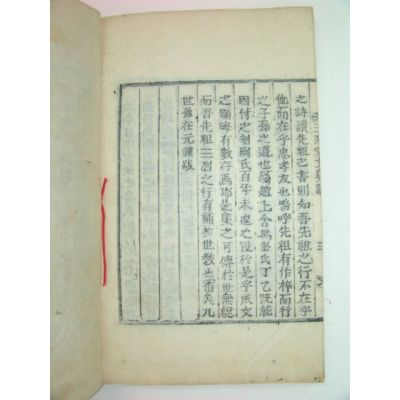 之詩讀先祖之書則知吾先祖之行不在乎
他而在乎忠孝友也嗚呼先祖有作梓而行
之子孫之道也屬趙上舍奎氏丁乙旣訖
因付之剞劂氏百年未遑之役於是乎成文
之顯晦有數存焉耶是集之可傳於世無
而吾先祖三烈之行有補於世敎也審矣九
世孫在元謹跋